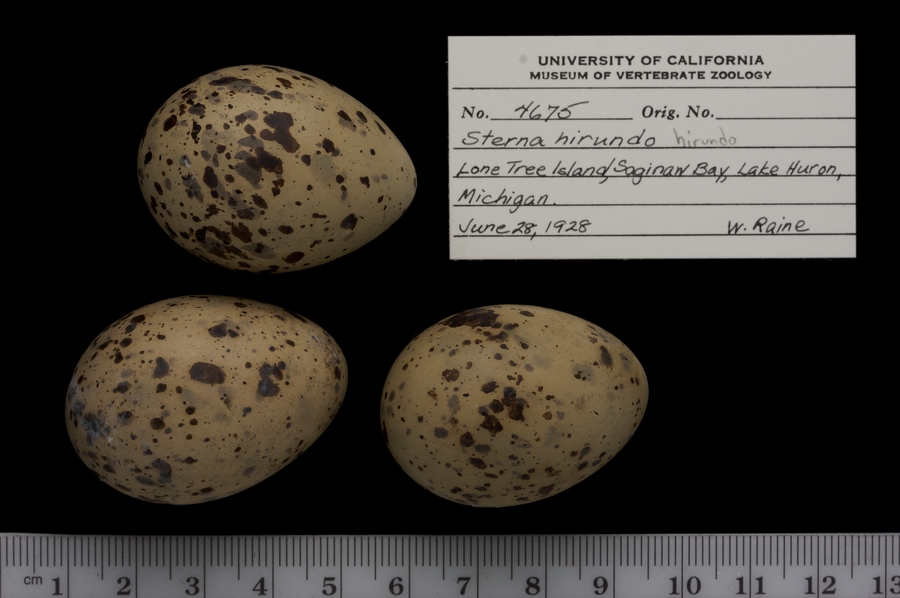 UNIVERSITY OF CALIFORNIA
MUSEUM OF VERTEBRATE ZOOLOGY
No. 4675 Orig. No.
Sterna hirundo hirundo
Lone Tree Island, Saginaw Bay, Lake Huron,
Michigan.
June 28, 1928 W. Raine
cm 1 2 3 4 5 6 7 8 9 10 11 12 13